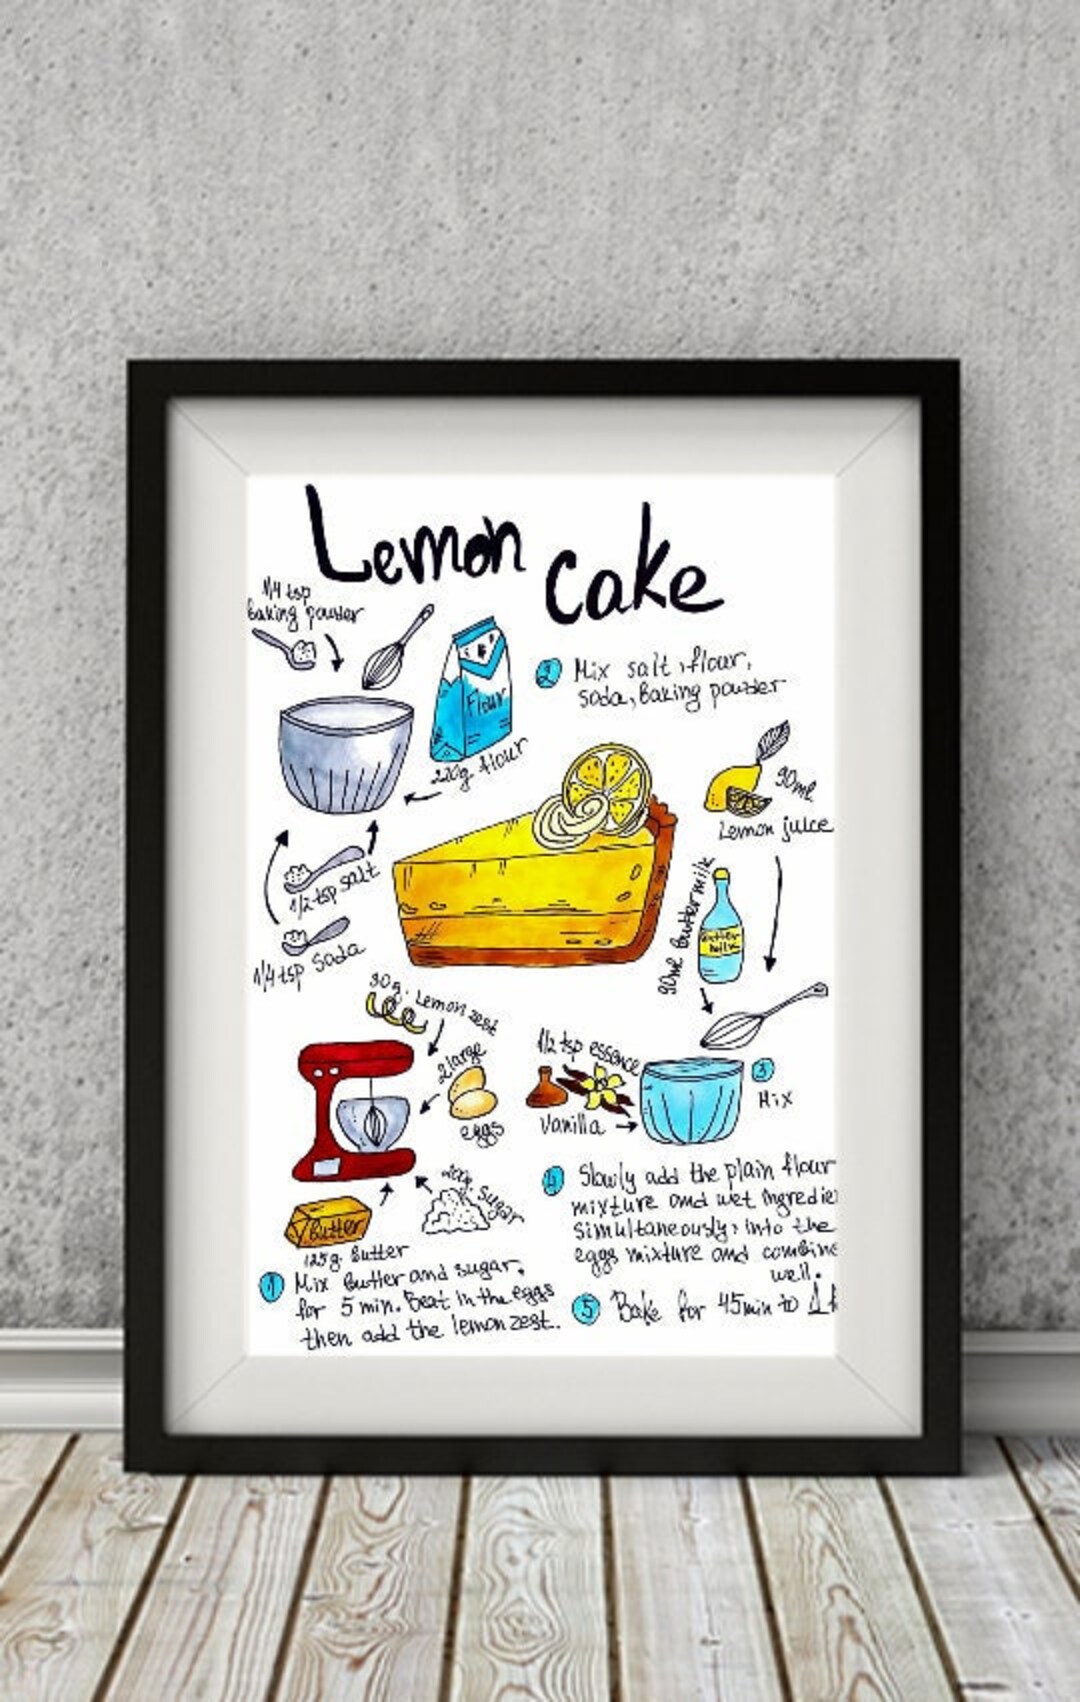 Lemon
cake
1/4 tsp
baking powder
Flour
220g. flour
2 Mix salt, flour,
soda, baking powder
90ml
Lemon juice
1/2 tsp salt
1/4 tsp soda
90ml buttermilk
Butter
milk
30g. Lemon zest
2 large
eggs
1/2 tsp essence
Vanilla
3
Mix
sugar
Butter
125g. butter
1 Mix butter and sugar,
for 5 min. Beat in the eggs
then add the lemon zest.
4 Slowly add the plain flour
mixture and wet ingredie
simultaneously, into the
eggs mixture and combine
well.
5 Bake for 45min to 1